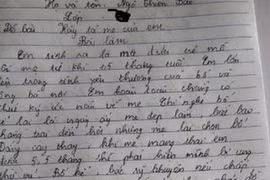 Họ và tên: Ngô Thiên Bảo
Lớp
Đề bài Hãy tả mẹ của em
Bài làm
Em sinh ra là một đứa trẻ mồ
mẹ từ khi 1,5 tháng tuổi. Em lớn
lên trong tình yêu thương của bố và
Em hoàn toàn chẳng có
chút ký ức nào về mẹ Chỉ nghe bố
kể lại là ngày ấy mẹ đẹp lắm, biết bao
chàng trai đến hỏi nhưng mẹ lại chọn bố
Đắng cay thay, khi mẹ mang thai em
5,5 tháng thì phát hiện mình bị ung
thư vú. Bố kể, bác sỹ khuyên nếu chấp